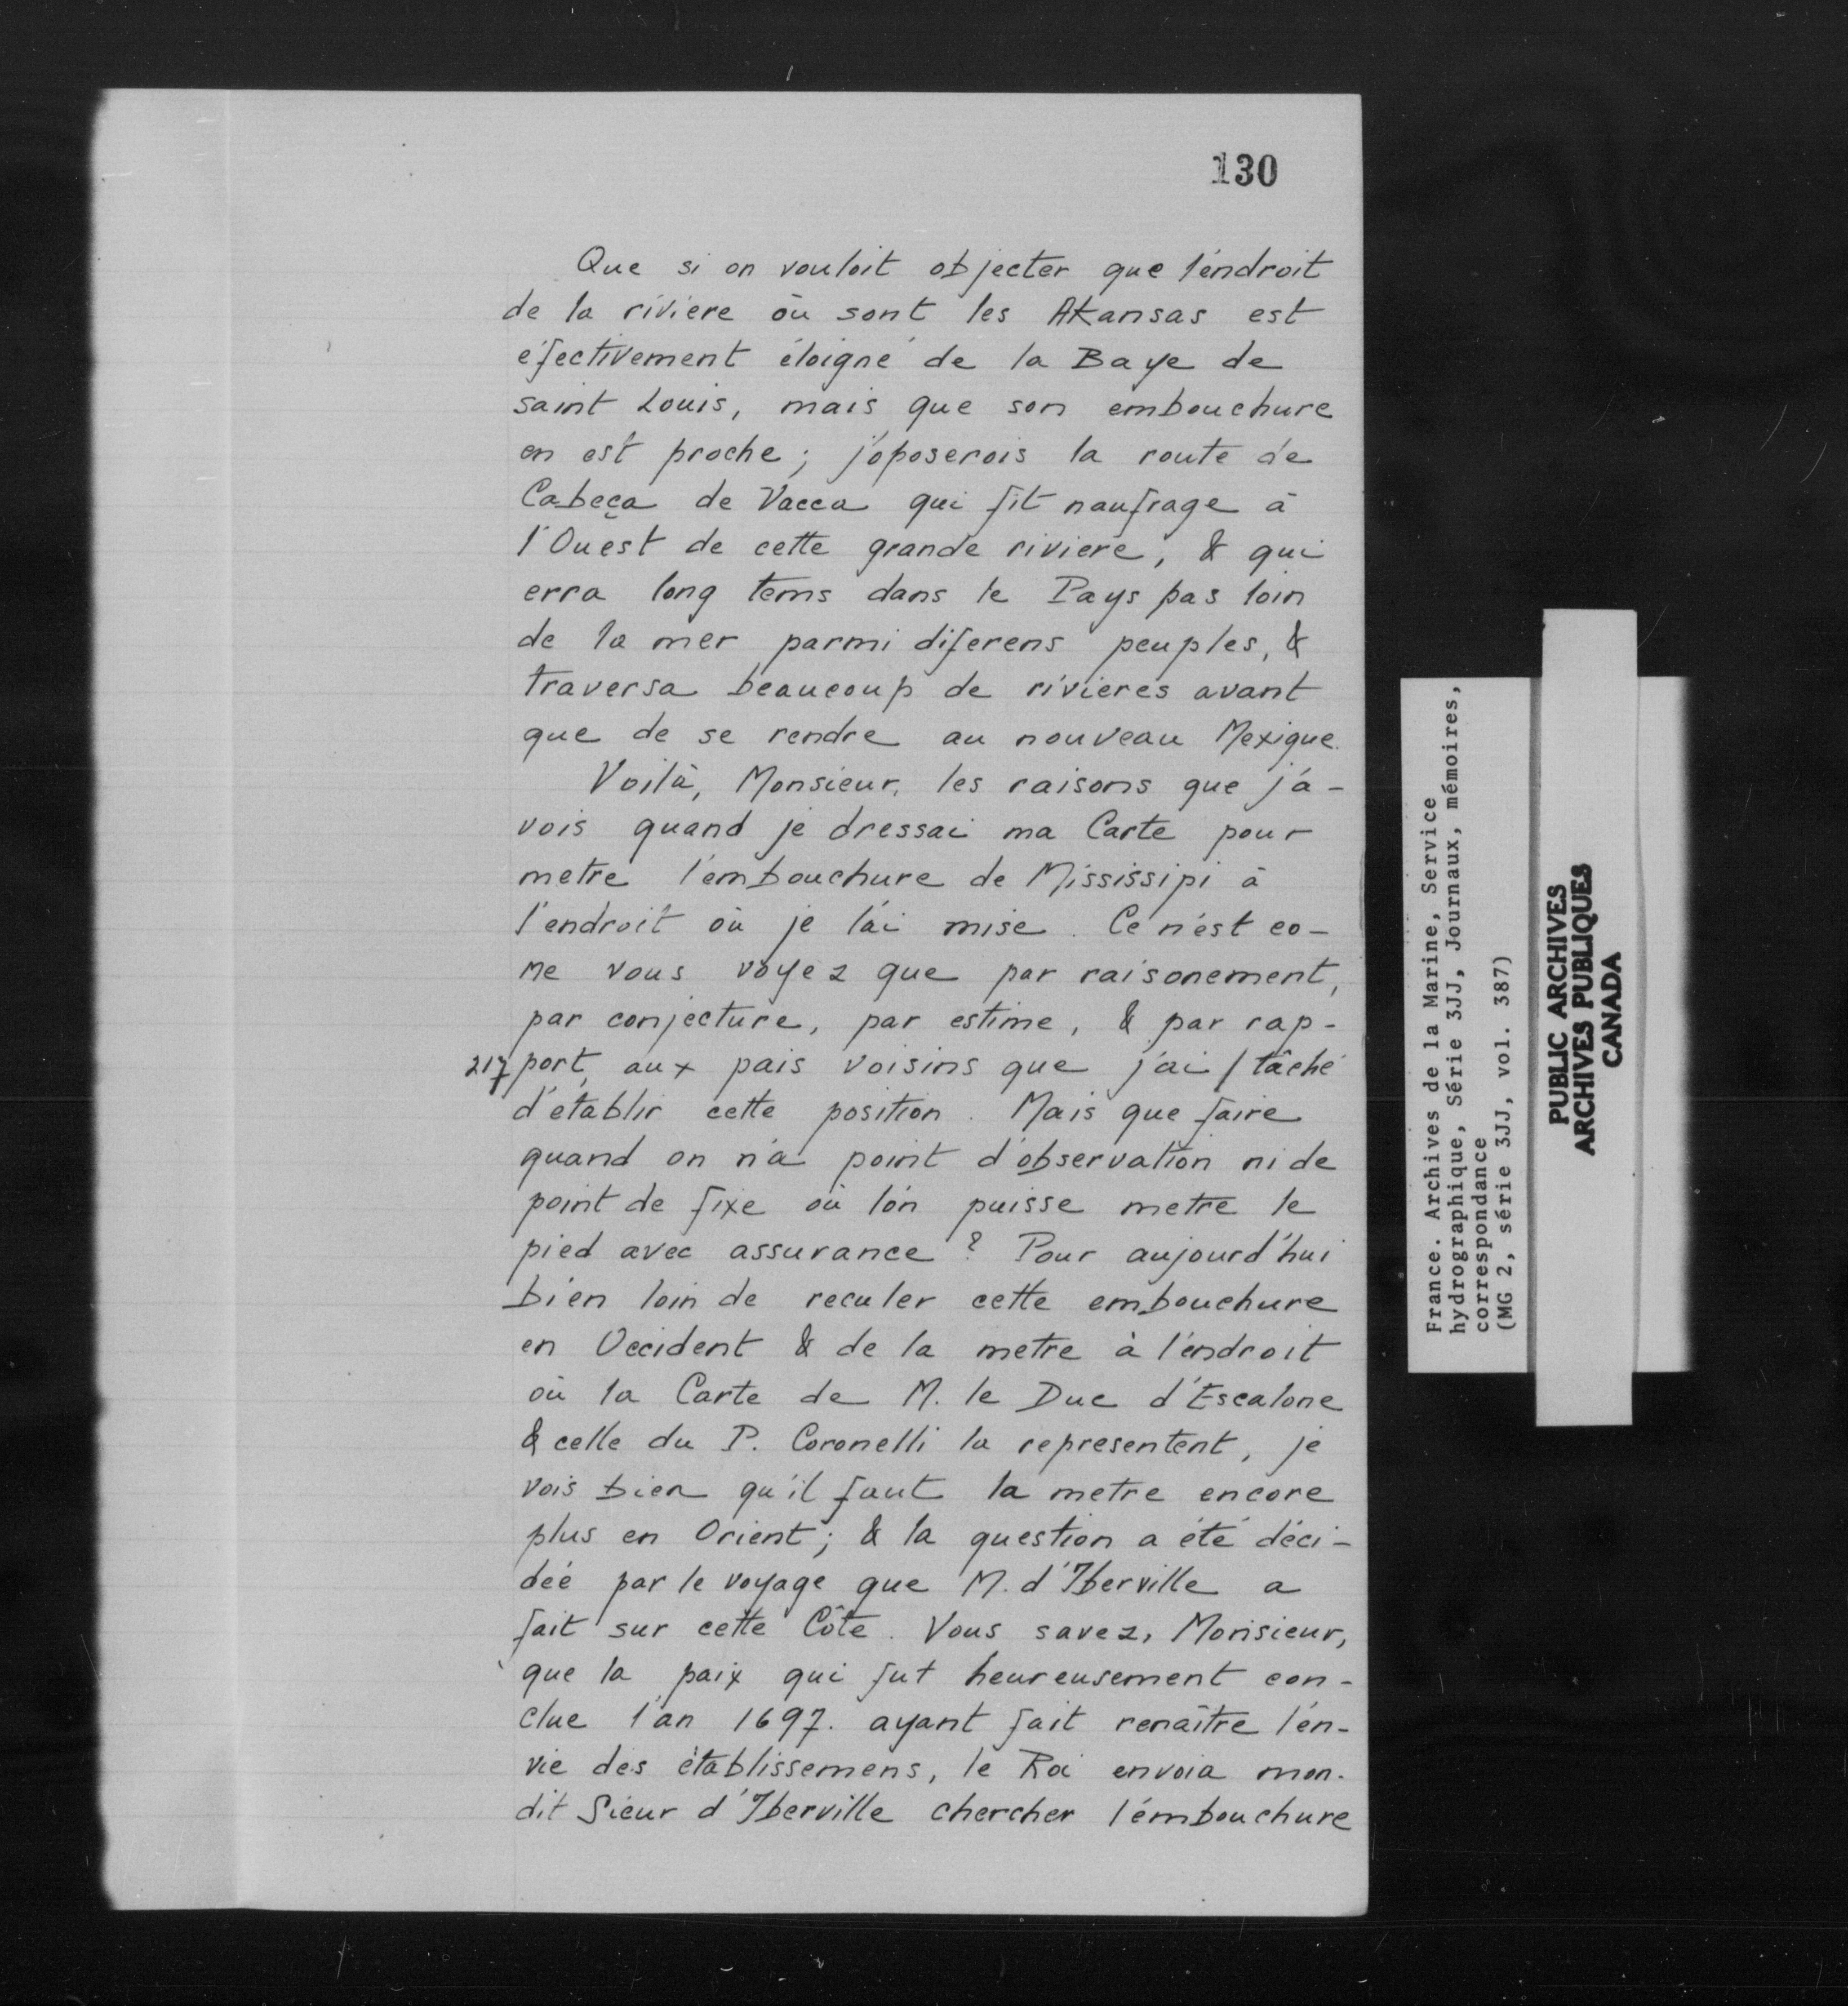 130
Que si on vouloit objecter que l'endroit
de la riviere où sont les Akansas est
éfectivement éloigné de la Baye de
saint Louis, mais que son embouchure
en est proche; j'oposerois la route de
Cabeça de Vacca qui fit naufrage à
l'Ouest de cette grande riviere, & qui
erra long tems dans le Pays pas loin
de la mer parmi diferens peuples, &
traversa beaucoup de rivieres avant
que de se rendre au nouveau Mexique.
Voilà, Monsieur, les raisons que j'a-
vois quand je dressai ma Carte pour
metre l'embouchure de Mississipi à
l'endroit où je l'ai mise. Ce n'est co-
me vous voyez que par raisonement,
par conjecture, par estime, & par rap-
217 port aux pais voisins que j'ai / tâché
d'établir cette position. Mais que faire
quand on n'a point d'observation ni de
point de fixe où l'on puisse metre le
pied avec assurance? Pour aujourd'hui
bien loin de reculer cette embouchure
en Occident & de la metre à l'endroit
où la Carte de M. le Duc d'Escalone
& celle du P. Coronelli la representent, je
vois bien qu'il faut la metre encore
plus en Orient; & la question a été déci-
dée par le voyage que M. d'Iberville a
fait sur cette Côte. Vous savez, Monsieur,
que la paix qui fut heureusement con-
clue l'an 1697. ayant fait renaître l'en-
vie des établissemens, le Roi envoia mon-
dit Sieur d'Iberville chercher l'embouchure
France. Archives de la Marine, Service
hydrographique, Série 3JJ, Journaux, mémoires,
correspondance
(MG 2, série 3JJ, vol. 387)
PUBLIC ARCHIVES
ARCHIVES PUBLIQUES
CANADA